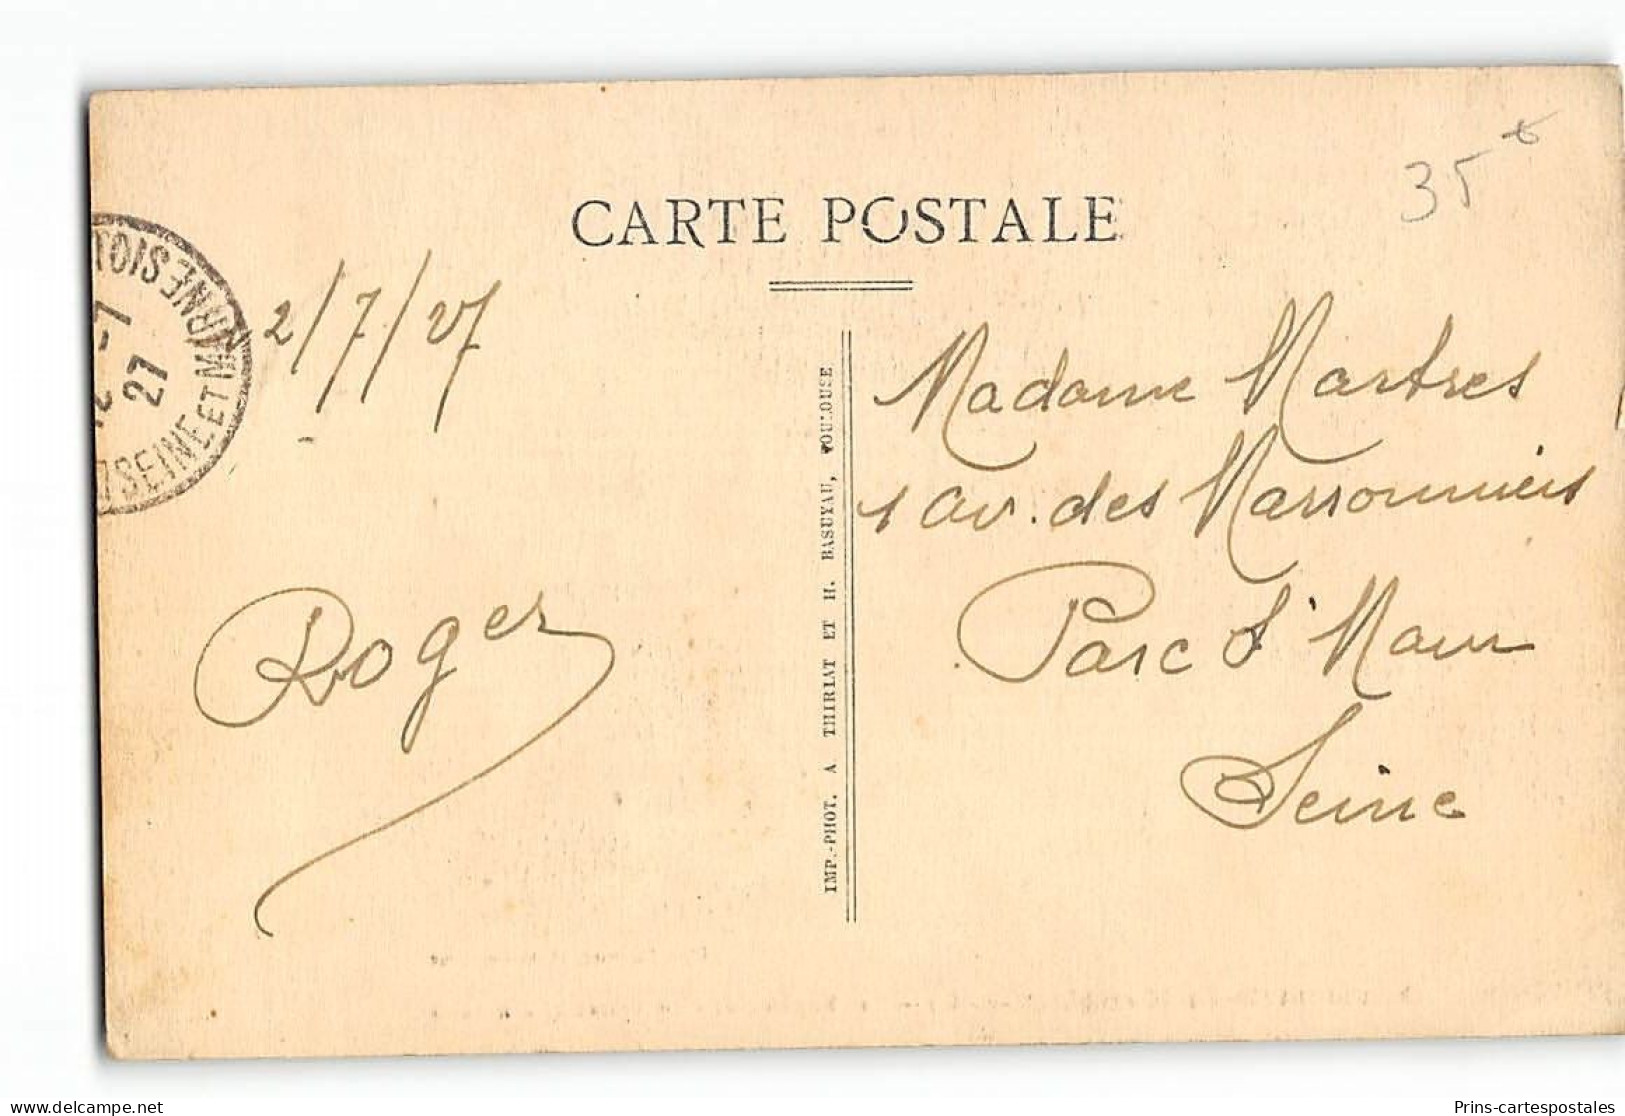 CARTE POSTALE
35
2/7/27
27
SEINE ET MARNE
Roger
IMP.-PHOT. A THIRIAT ET H. BASUYAU, TOULOUSE
Madame Martres
1 av. des Marronniers
Parc St Maur
Seine
delcampe.net
Prins-cartespostales